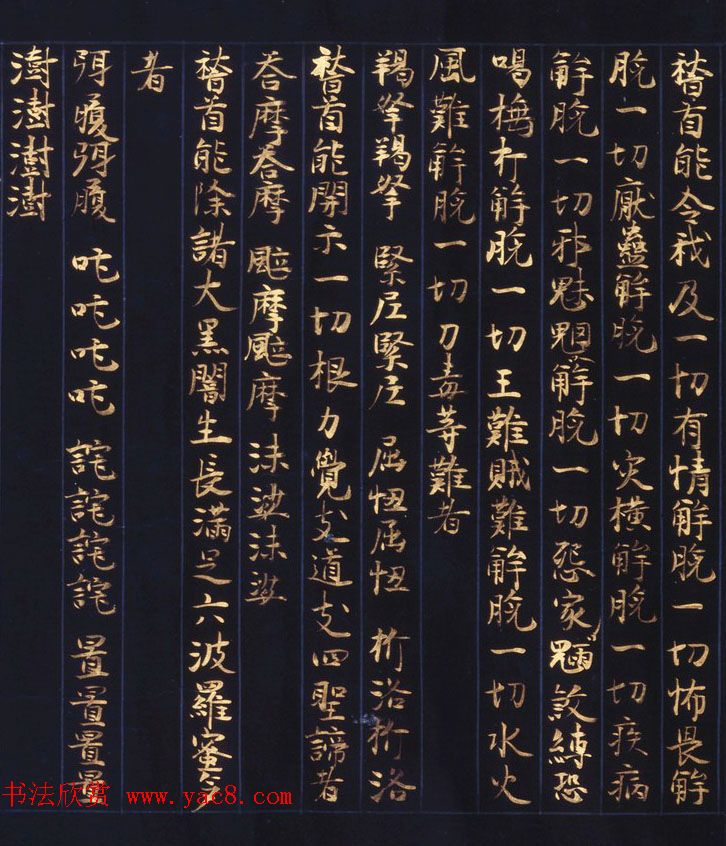 稽首能令我及一切有情解脫一切怖畏解
脫一切厭蠱解脫一切災橫解脫一切疾病
解脫一切邪魅魍解脫一切怨家 縛恐
喝 打解脫一切王難賊難解脫一切水火
風難解脫一切刀毒等難者
羯拏羯拏 緊尼緊尼 屈忸屈忸 析洛析洛
稽首能開示一切根力覺支道支四聖諦者
荅摩荅摩 颭摩颭摩 沫娑沫娑
稽首能除諸大黑闇生長滿足六波羅蜜多
者
弭 弭 吒吒吒吒 詫詫詫詫 置置置置
澍澍澍澍
书法欣赏 www.yac8.com